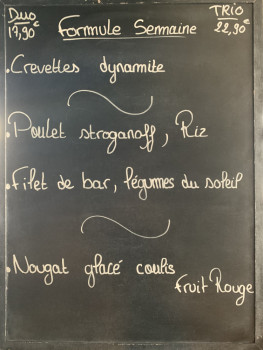 Duo
19,90€
Formule Semaine
TRIO
22,90€
. Crevettes dynamite
. Poulet stroganoff, Riz
. Filet de bar, légumes du soleil
. Nougat glacé coulis
Fruit Rouge